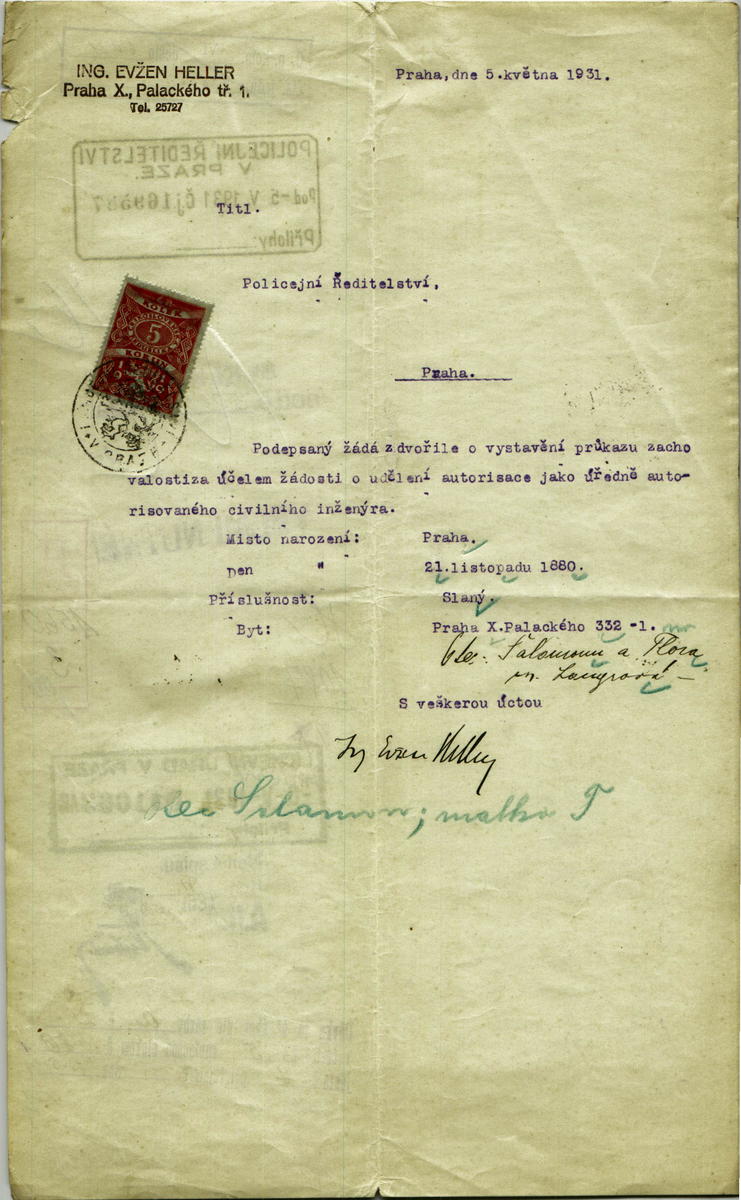 ING. EVŽEN HELLER
Praha X., Palackého tř. 1.
Tel. 25727
Praha, dne 5.května 1931.
POLICEJNÍ ŘEDITELSTVÍ
V PRAZE.
Pod -5 V 1931 čj
Přílohy
Titl.
Policejní Ředitelství,
KOLEK
ČESKOSLOVENSKÁ
5
REPUBLIKA
KORUN
Praha.
Podepsaný žádá zdvořile o vystavění průkazu zacho
valostiza účelem žádosti o udělení autorisace jako úředně auto-
risovaného civilního inženýra.
Misto narození: Praha.
Den " 21.listopadu 1880.
Příslušnost: Slaný.
Byt: Praha X.Palackého 332 -1.
Otec: Šalamoun a Flora
S veškerou úctou
Ing Evžen Heller
otec Salamon; matka F